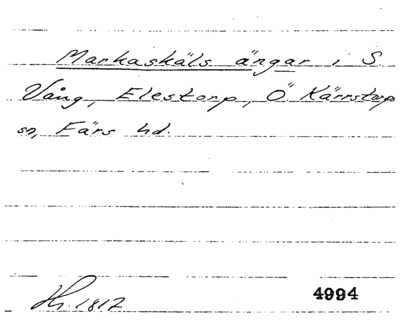 Markaskäls ängar i S.
Vång, Elestorp, Ö. Kärrstorps
sn, Färs hd.
Hy. 1817
4994